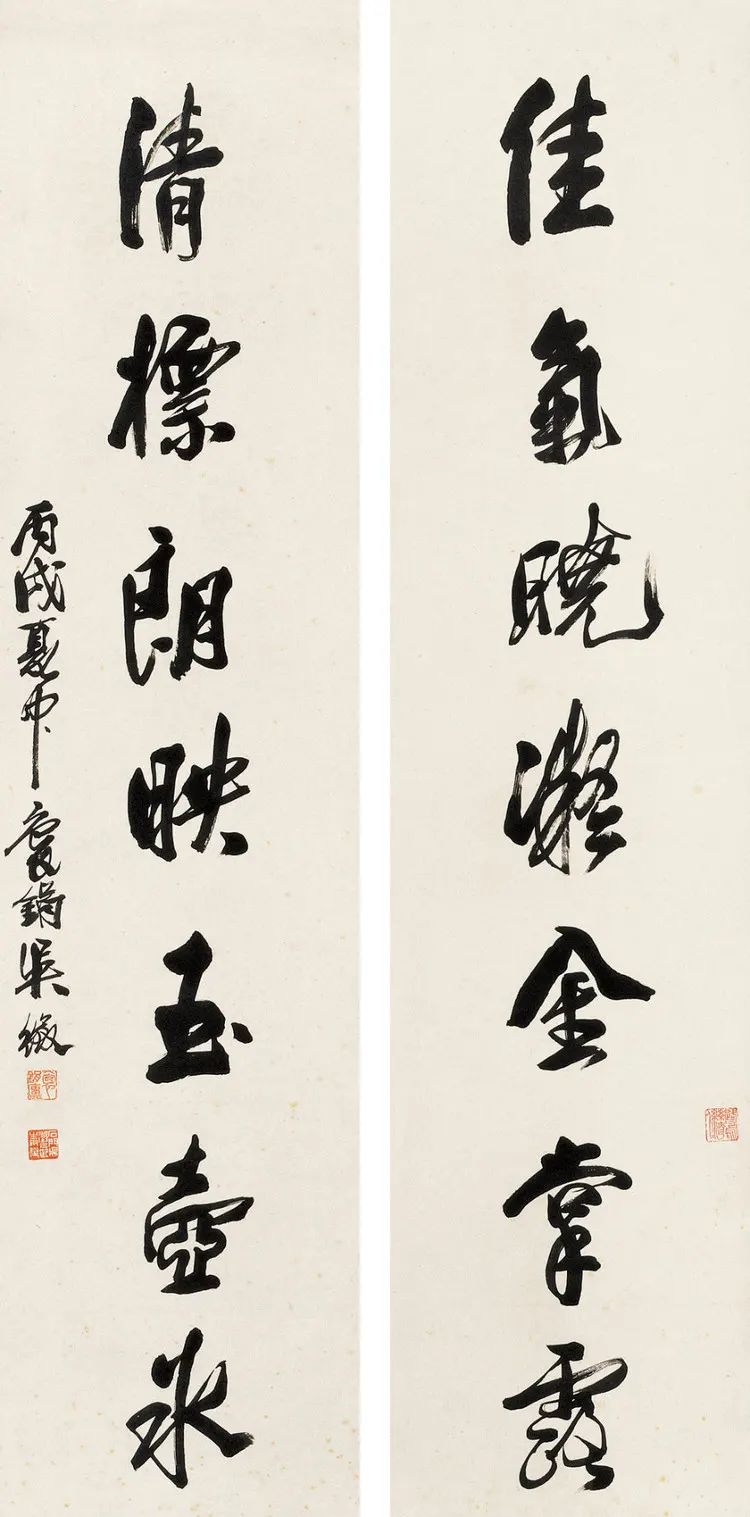 佳氣曉凝金掌露
清標朗映玉壺冰
丙戌夏中袌鋗吳徵